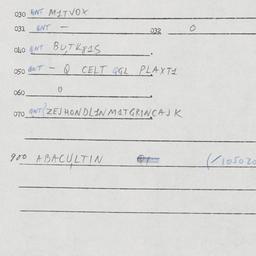 030 ANT M1TVOX
031 ANT - 032 0
040 ANT BUTK81S
050 ANT - Q CELT QGL PLAXT1
060 0
070 ANT(ZEJHONDL1NM1TGRINCAJK
900 ABACULTIN (/105020